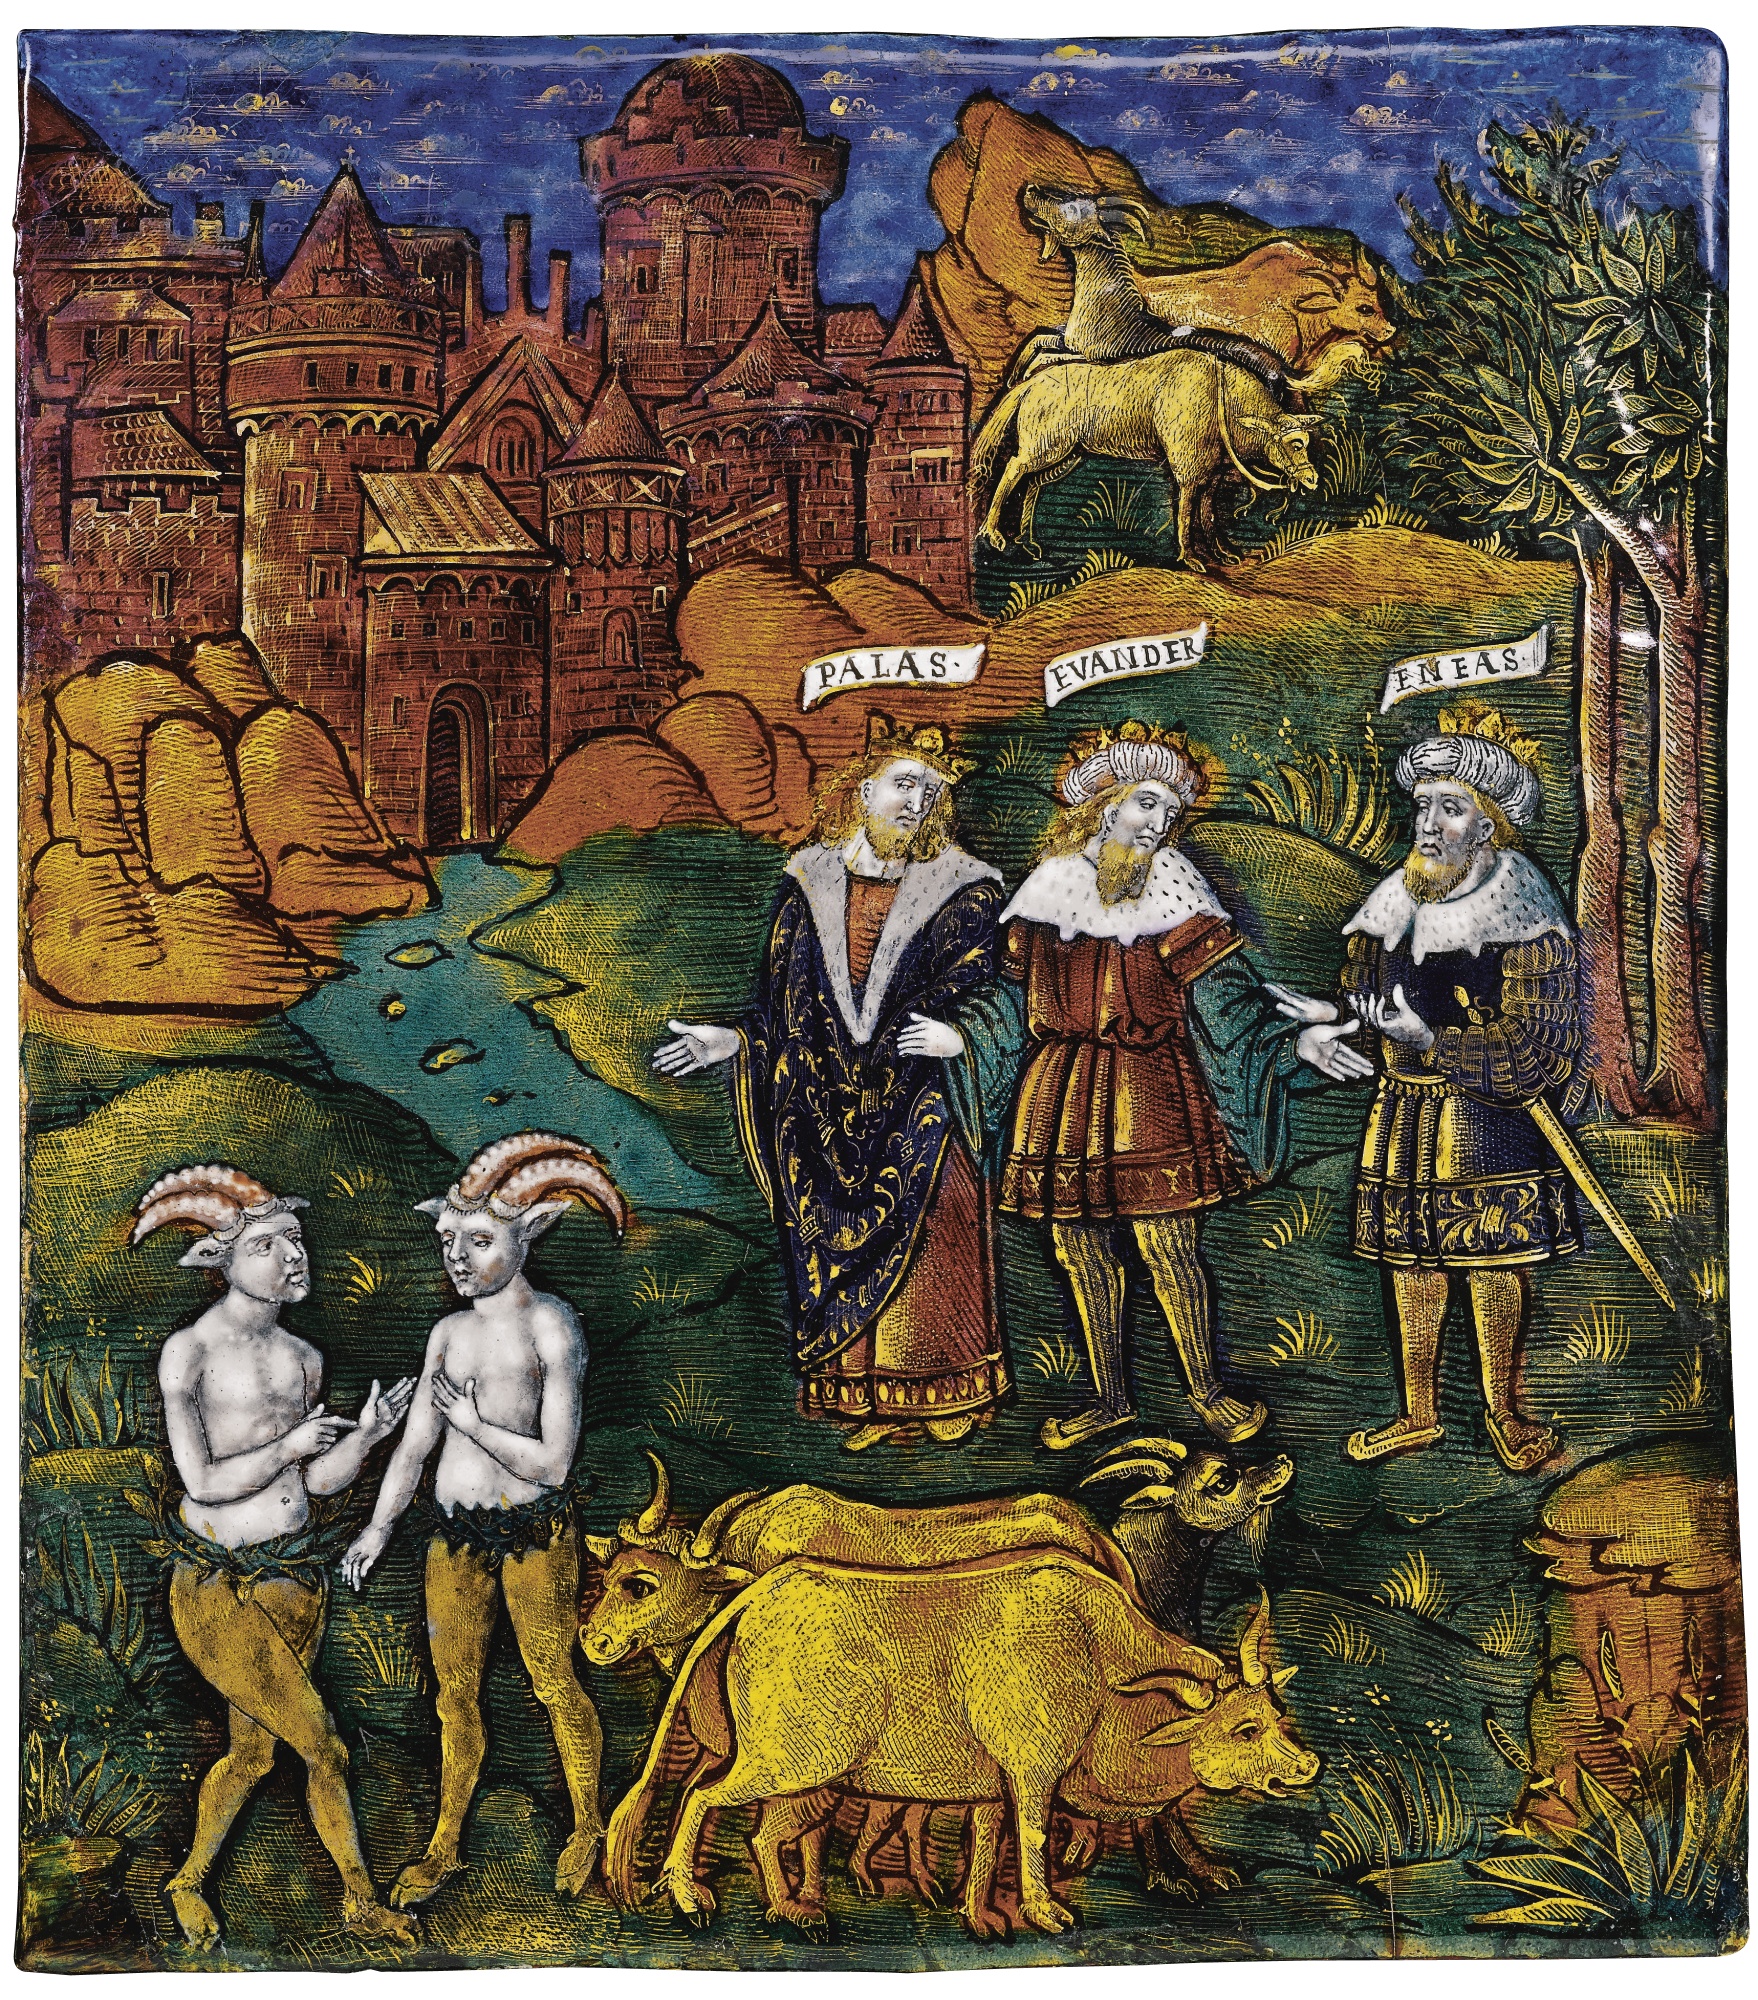 PALAS·
EVANDER
ENEAS·